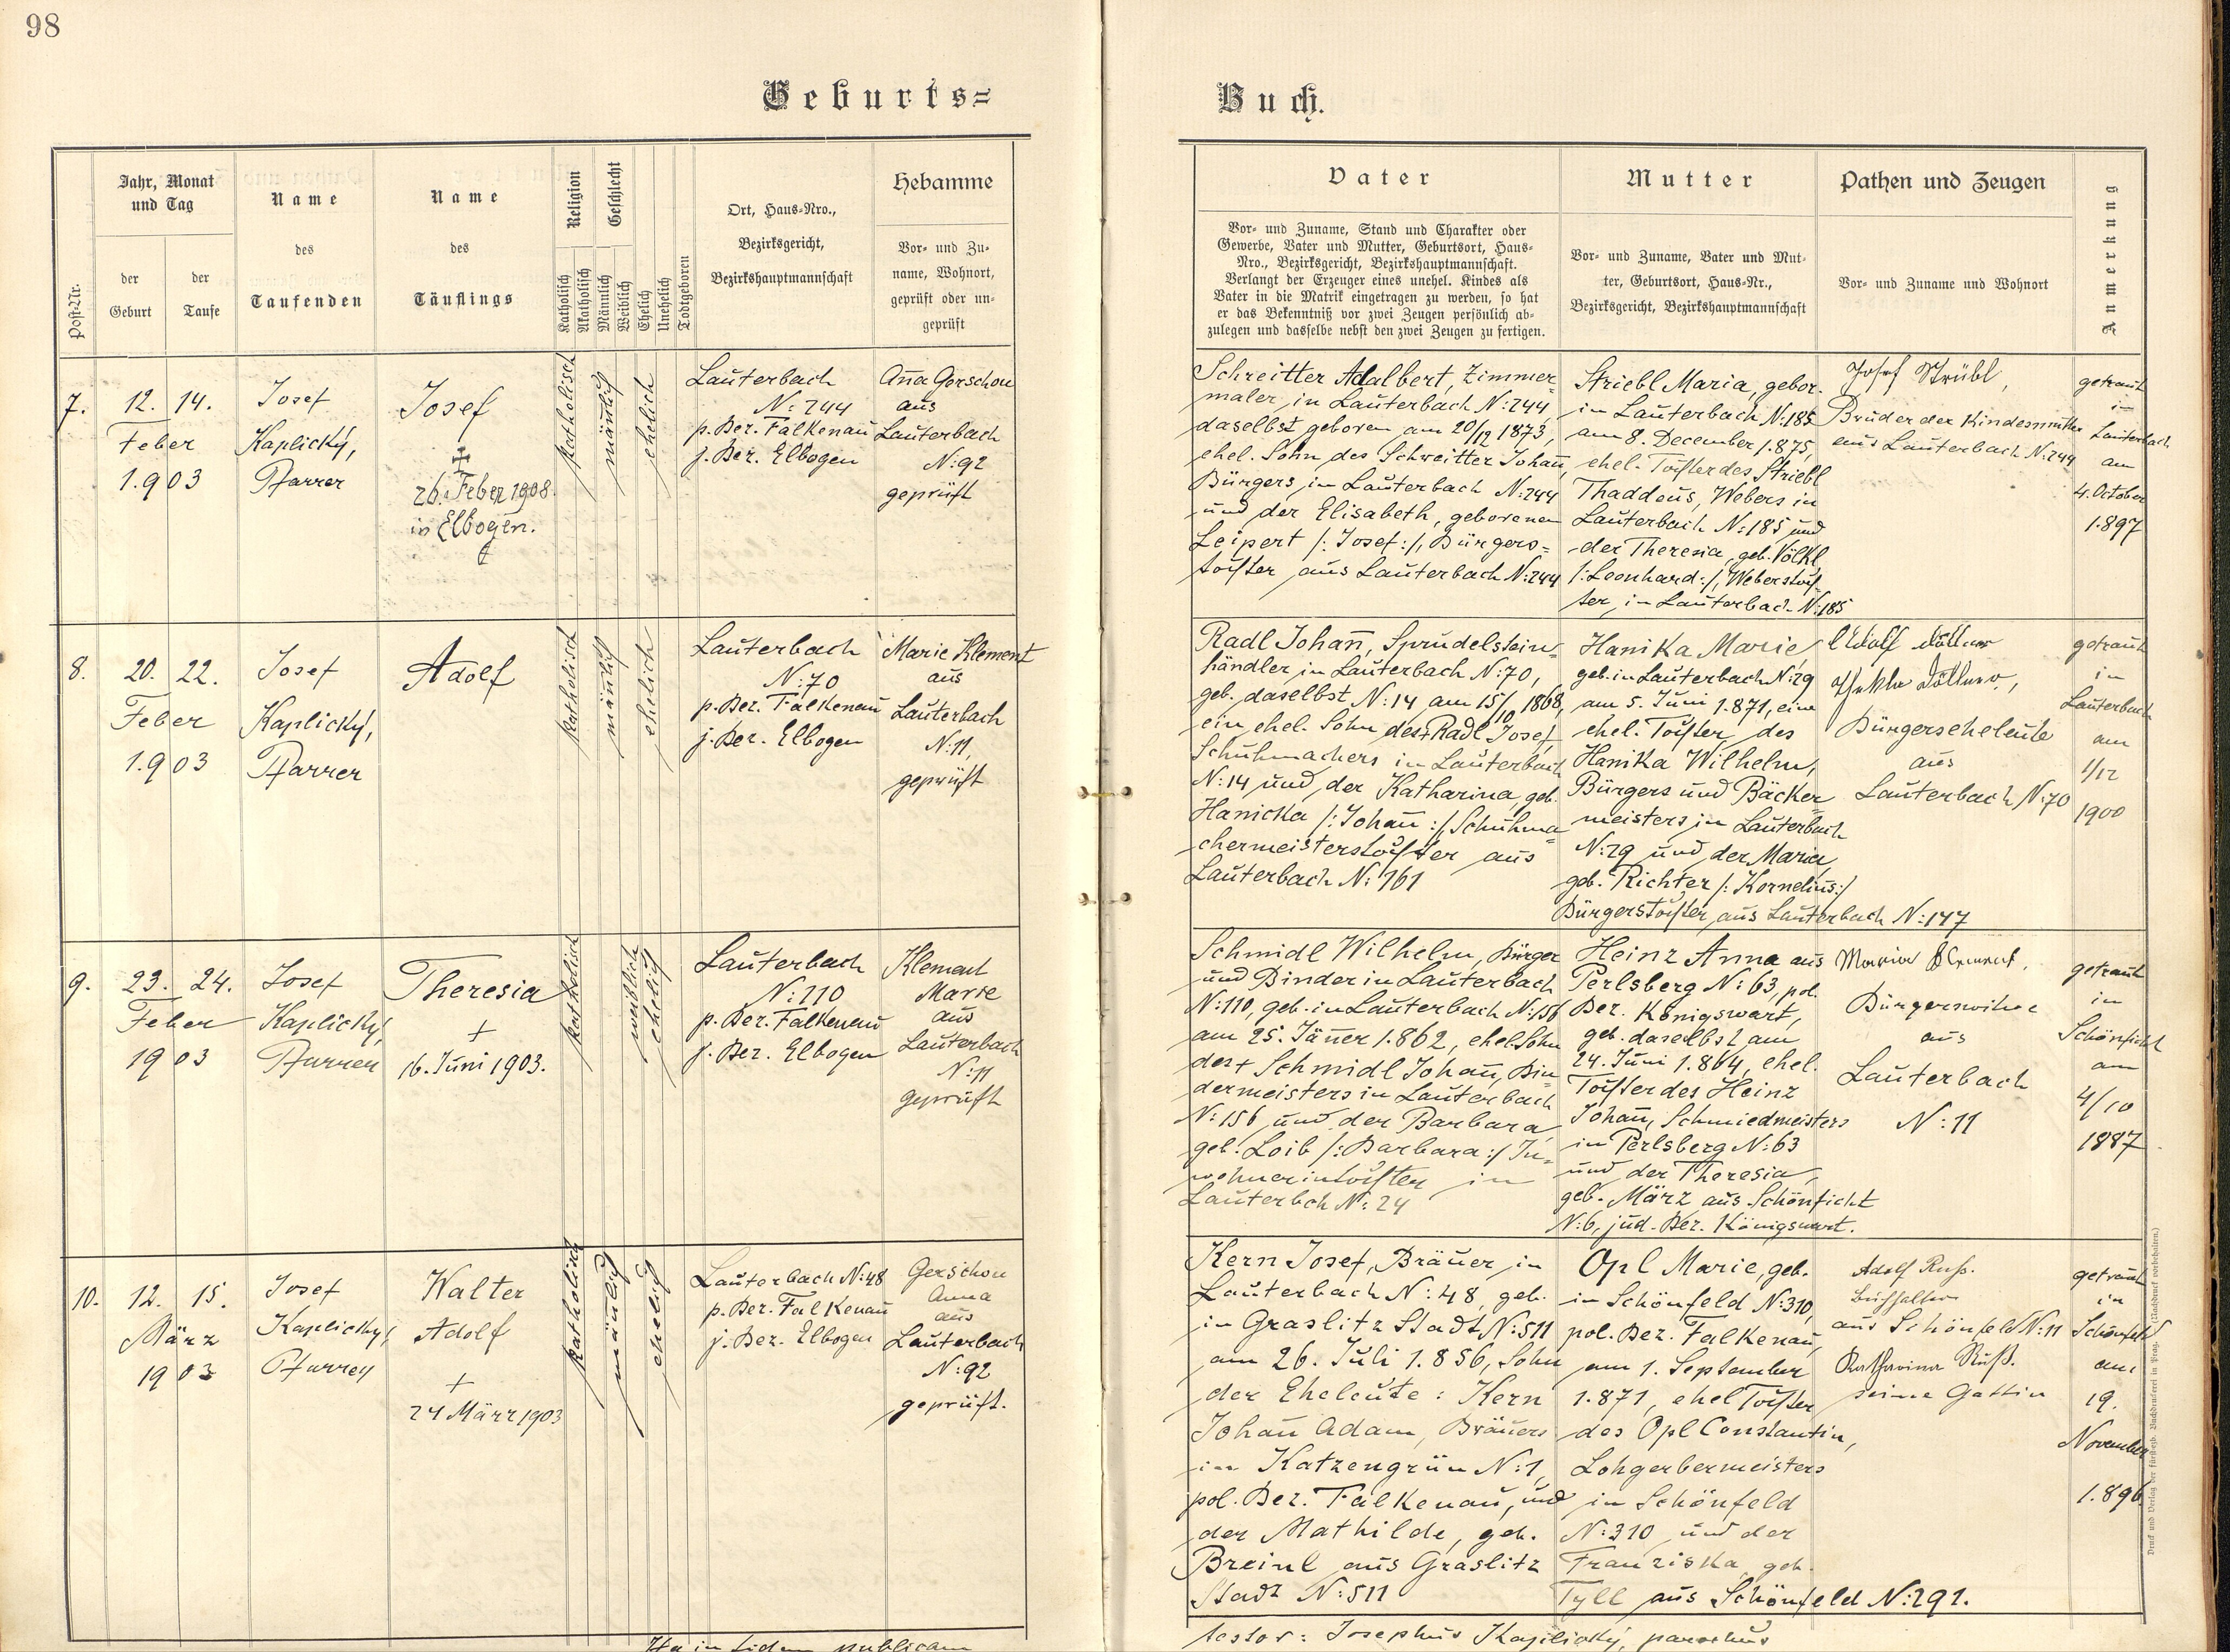 98
Geburts=
Buch.
Post-Nr.
Jahr, Monat
und Tag
der
Geburt
der
Taufe
Name
des
Taufenden
Name
des
Täuflings
Religion
Katholisch
Akatholisch
Geschlecht
Männlich
Weiblich
Ehelich
Unehelich
Todtgeboren
Ort, Haus-Nro.,
Bezirksgericht,
Bezirkshauptmannschaft
Hebamme
Vor- und Zu-
name, Wohnort,
geprüft oder un-
geprüft
Vater
Vor- und Zuname, Stand und Charakter oder
Gewerbe, Vater und Mutter, Geburtsort, Haus-
Nro., Bezirksgericht, Bezirkshauptmannschaft.
Verlangt der Erzeuger eines unehel. Kindes als
Vater in die Matrik eingetragen zu werden, so hat
er das Bekenntniß vor zwei Zeugen persönlich ab-
zulegen und dasselbe nebst den zwei Zeugen zu fertigen.
Mutter
Vor- und Zuname, Vater und Mut-
ter, Geburtsort, Haus-Nr.,
Bezirksgericht, Bezirkshauptmannschaft
Pathen und Zeugen
Vor- und Zuname und Wohnort
Anmerkung
7.
12. 14.
Feber
1.903
Josef
Kaplický,
Pfarrer
Josef
26. Feber 1908.
in Elbogen.
katholisch
män̄lich
ehelich
Lauterbach
N: 244
p. Bez. Falkenau
j. Bez. Elbogen
An̄a Gerschon
aus
Lauterbach
N:92
geprüft
Schreitter Adalbert, Zimmer=
maler in Lauterbach N:244
daselbst geboren am 20/12 1873,
ehel. Sohn des Schreitter Johan̄,
Bürgers in Lauterbach N:244
und der Elisabeth, geborenen
Leipert /: Josef :/, Bürgers=
tochter aus Lauterbach N:244
Striebl Maria, gebor.
in Lauterbach N:185
am 8. December 1.875,
ehel. Tochter des Striebl
Thaddeus, Webers in
Lauterbach N:185 und
der Theresia, geb. Völkl
/: Leonhard :/, Weberstoch
ter, in Lauterbach N:185
Josef Strübl,
Bruder der Kindesmutter
aus Lauterbach N:244
getraut
in
Lauterbach
am
4. October
1.897
8.
20. 22.
Feber
1.903
Josef
Kaplický,
Pfarrer
Adolf
katholisch
män̄lich
ehelich
Lauterbach
N:70
p. Bez. Falkenau
j. Bez. Elbogen
Marie Klement
aus
Lauterbach
N:11,
geprüft
Radl Johan̄, Sprudelstein=
händler in Lauterbach N:70,
geb. daselbst N:14 am 15/10 1868,
ein ehel. Sohn des + Radl Josef,
Schuhmachers in Lauterbach
N:14 und der Katharina, geb.
Hanicka /: Johan̄ :/, Schuhma=
chermeisterstochter aus
Lauterbach N: 161
Hanika Marie
geb. in Lauterbach N:29
am 5. Juni 1.871, eine
ehel. Tochter des
Hanika Wilhelm,
Bürgers und Bäcker=
meisters in Lauterbach
N:29 und der Maria,
geb. Richter /: Kornelius :/
Bürgerstochter aus Lauterbach N:147
Adolf
Bürgerseheleute
aus
Lauterbach N:70
getraut
in
Lauterbach
am
1/12
1900
9.
23. 24.
Feber
1903
Josef
Kaplický,
Pfarrer
Theresia
+
16. Juni 1903.
katholisch
weiblich
ehelich
Lauterbach
N:110
p. Bez. Falkenau
j. Bez. Elbogen
Klement
Marie
aus
Lauterbach
N:11
geprüft
Schmidl Wilhelm, Bürger
und Binder in Lauterbach
N:110, geb. in Lauterbach N:156
am 25. Jän̄er 1.862, ehel. Sohn
des + Schmidl Johan̄, Bin=
dermeisters in Lauterbach
N:156 und der Barbara
geb. Loib /: Barbara :/ In=
wohnerintochter in
Lauterbch N: 24
Heinz Anna aus
Perlsberg N: 63, pol.
Bez. Königswart,
geb. daselbst am
24. Juni 1.864, ehel.
Tochter des Heinz
Johan̄, Schmiedmeisters
in Perlsberg N:63
und der Theresia,
geb. März aus Schönficht
N:6, jud. Bez. Königswart.
Maria Klement,
Bürgerswitwe
aus
Lauterbach
N:11
getraut
in
Schönficht
am
4/10
1887
10.
12. 15.
März
1903
Josef
Kaplický,
Pfarrer
Walter
Adolf
+
24 März 1903
katholisch
män̄lich
ehelich
Lauterbach N:48
p. Bez. Falkenau
j. Bez. Elbogen
Gerschon
Anna
aus
Lauterbach
N:92
geprüft.
Kern Josef, Bräuer in
Lauterbach N: 48, geb.
in Graslitz Stadt N:511
am 26. Juli 1.856, Sohn
der Eheleute: Kern
Johan̄ Adam, Bräuers
in Katzengrün N:1,
pol. Bez. Falkenau, und
der Mathilde, geb.
Breinl aus Graslitz
Stadt N:511
Opl Marie, geb.
in Schönfeld N:310,
pol. Bez. Falkenau,
am 1. September
1.871, ehel Tochter
des Opl Constantin,
Lohgerbermeisters
in Schönfeld
N:310 und der
Franziska, geb.
Tyll aus Schönfeld N:291.
Adolf Ruß.
Buchhalter
aus Schönfeld N:11
Katharina Ruß.
seine Gattin
getraut
in
Schönfeld
am
19.
November
1.896
Ita in fidem publicam
testor: Josephus Kaplický, parochus
Druck und Verlag der fürsterzb. Buchdruckerei in Prag. (Nachdruck vorbehalten.)